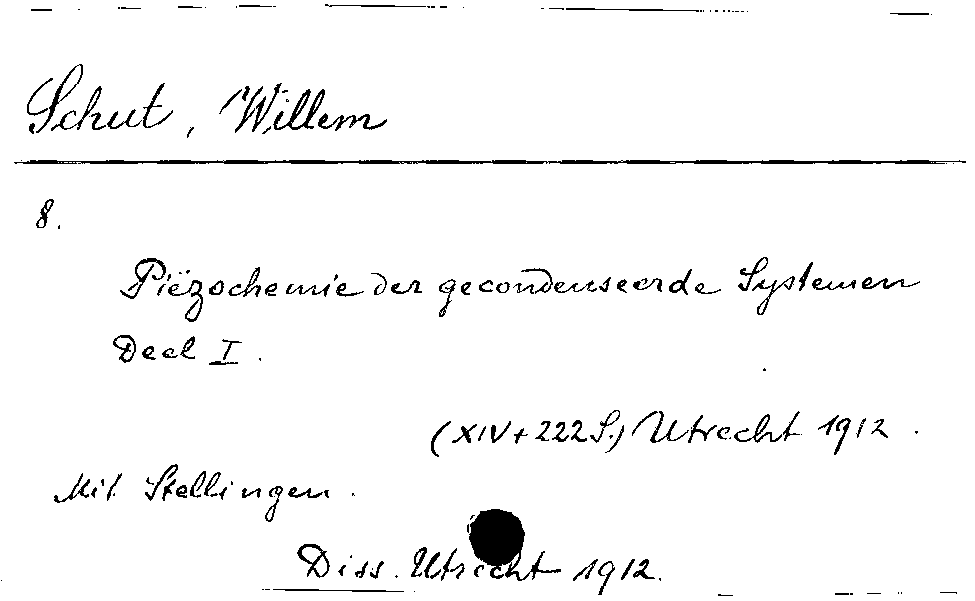 Schut, Willem
8.
Piëzochemie der gecondenseerde Systemen
Deel I.
(XIV + 222 S.) Utrecht 1912.
Mit Stellingen.
Diss. Utrecht 1912.